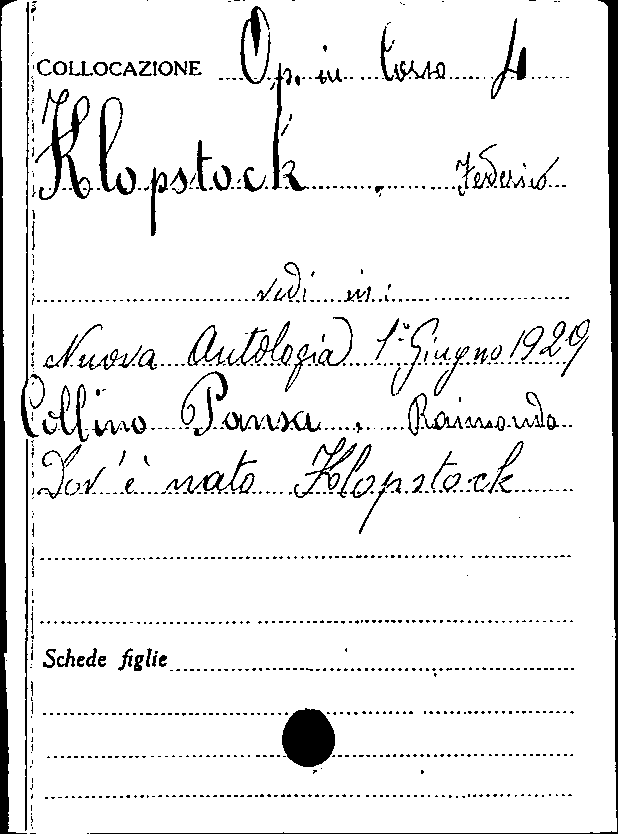 COLLOCAZIONE Op. in Corso 4
Klopstock . Federico
vedi in:
Nuova Antologia 1° Giugno 1929
Collino Pansa . Raimondo
Dov'è nato Klopstock
Schede figlie